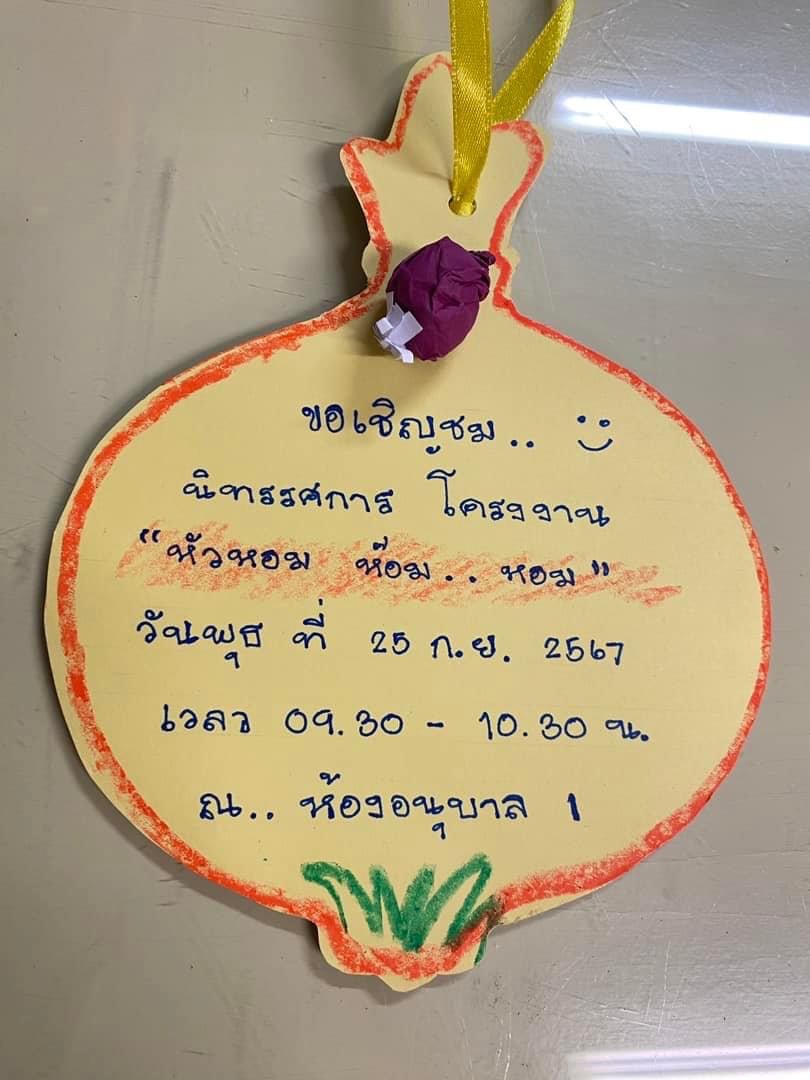 ขอเชิญชม..
นิทรรศการ โครงงาน
"หัวหอม ห๊อม.. หอม"
วันพุธ ที่ 25 ก.ย. 2567
เวลา 09.30 - 10.30 น.
ณ.. ห้องอนุบาล 1